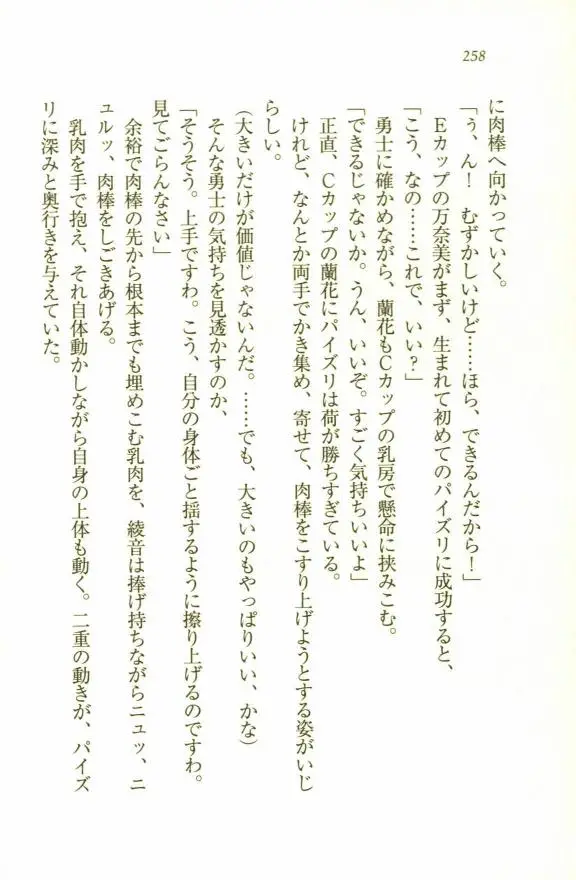 258
に肉棒へ向かっていく。
「ぅ、ん！　むずかしいけど……ほら、できるんだから！」
Eカップの万奈美がまず、生まれて初めてのパイズリに成功すると、
「こう、なの……これで、いい？」
勇士に確かめながら、蘭花もCカップの乳房で懸命に挟みこむ。
「できるじゃないか。うん、いいぞ。すごく気持ちいいよ」
正直、Cカップの蘭花にパイズリは荷が勝ちすぎている。
けれど、なんとか両手でかき集め、寄せて、肉棒をこすり上げようとする姿がいじ
らしい。
（大きいだけが価値じゃないんだ。……でも、大きいのもやっぱりいい、かな）
そんな勇士の気持ちを見透かすのか、
「そうそう。上手ですわ。こう、自分の身体ごと揺するように擦り上げるのですわ。
見てごらんなさい」
余裕で肉棒の先から根本までも埋めこむ乳肉を、綾音は捧げ持ちながらニュッ、ニ
ュルッ、肉棒をしごきあげる。
乳肉を手で抱え、それ自体動かしながら自身の上体も動く。二重の動きが、パイズ
リに深みと奥行きを与えていた。